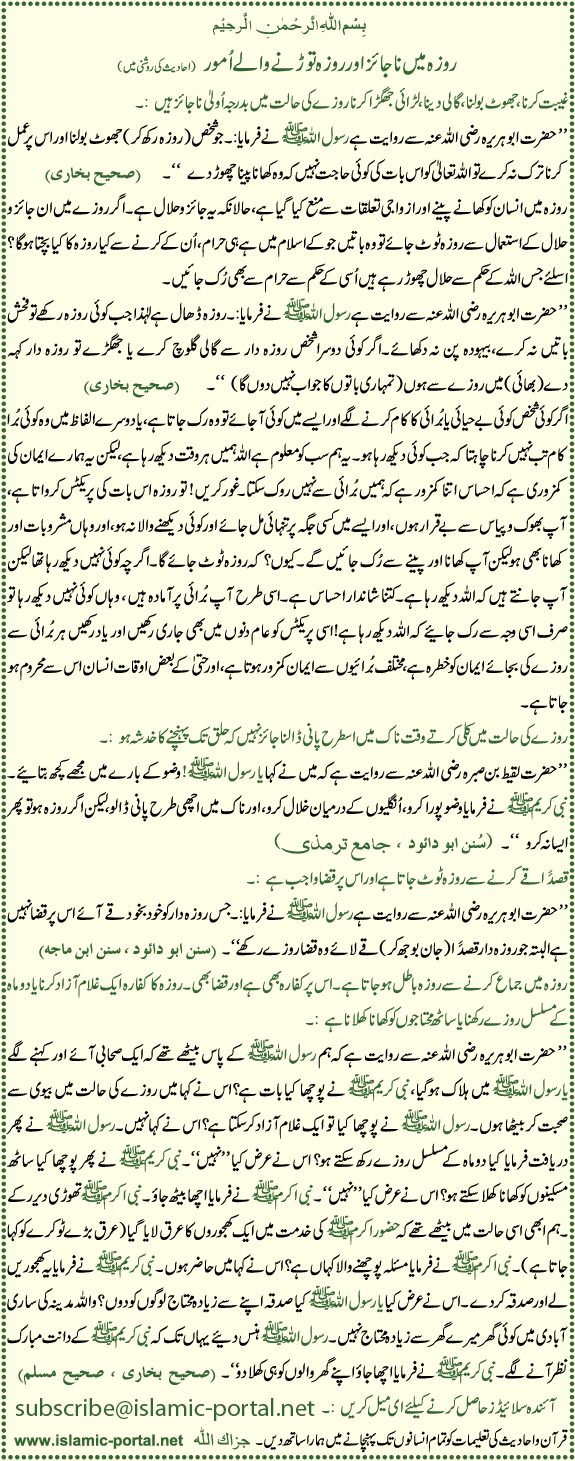 بِسْمِ اللهِ الرَّحْمٰنِ الرَّحِيْمِ
روزہ میں ناجائز اور روزہ توڑنے والے اُمور (احادیث کی روشنی میں)
غیبت کرنا، جھوٹ بولنا، گالی دینا، لڑائی جھگڑا کرنا روزے کی حالت میں بدرجہ اُولیٰ ناجائز ہیں :۔
’’حضرت ابو ہریرہ رضی اللہ عنہ سے روایت ہے رسول اللہ ﷺ نے فرمایا:۔ جو شخص (روزہ رکھ کر) جھوٹ بولنا اور اس پر عمل
کرنا ترک نہ کرے تو اللہ تعالیٰ کو اس بات کی کوئی حاجت نہیں کہ وہ کھانا پینا چھوڑ دے ‘‘۔ (صحیح بخاری)
روزہ میں انسان کو کھانے پینے اور ازواجی تعلقات سے منع کیا گیا ہے، حالانکہ یہ جائز و حلال ہے۔ اگر روزے میں ان جائز و
حلال کے استعمال سے روزہ ٹوٹ جائے تو وہ باتیں جو کے اسلام میں ہے ہی حرام، اُن کے کرنے سے کیا روزہ کا کیا بچتا ہوگا؟
اسلئے جس اللہ کے حکم سے حلال چھوڑ رہے ہیں اُسی کے حکم سے حرام سے بھی رُک جائیں ۔
’’حضرت ابو ہریرہ رضی اللہ عنہ سے روایت ہے رسول اللہ ﷺ نے فرمایا:۔ روزہ ڈھال ہے لہٰذا جب کوئی روزہ رکھے تو فحش
باتیں نہ کرے، بیہودہ پن نہ دکھائے۔ اگر کوئی دوسرا شخص روزہ دار سے گالی گلوچ کرے یا جھگڑے تو روزہ دار کہہ
دے (بھائی) میں روزے سے ہوں (تمہاری باتوں کا جواب نہیں دوں گا) ‘‘۔ (صحیح بخاری)
اگر کوئی شخص کوئی بے حیائی یا بُرائی کا کام کرنے لگے اور ایسے میں کوئی آجائے تو وہ رک جاتا ہے، یا دوسرے الفاظ میں وہ کوئی بُرا
کام تب نہیں کرنا چاہتا کہ جب کوئی دیکھ رہا ہو۔ یہ ہم سب کو معلوم ہے اللہ ہمیں ہر وقت دیکھ رہا ہے، لیکن یہ ہمارے ایمان کی
کمزوری ہے کہ احساس اتنا کمزور ہے کہ ہمیں بُرائی سے نہیں روک سکتا۔ غور کریں! تو روزہ اس بات کی پریکٹس کرواتا ہے،
آپ بھوک و پیاس سے بے قرار ہوں، اور ایسے میں کسی جگہ پر تنہائی مل جائے اور کوئی دیکھنے والا نہ ہو، اور وہاں مشروبات اور
کھانا بھی ہو لیکن آپ کھانا اور پینے سے رُک جائیں گے۔ کیوں؟ کہ روزہ ٹوٹ جائے گا۔ اگر چہ کوئی نہیں دیکھ رہا تھا لیکن
آپ جانتے ہیں کہ اللہ دیکھ رہا ہے۔ کتنا شاندار احساس ہے۔ اسی طرح آپ بُرائی پر آمادہ ہیں، وہاں کوئی نہیں دیکھ رہا تو
صرف اسی وجہ سے رک جایئے کہ اللہ دیکھ رہا ہے! اسی پریکٹس کو عام دنوں میں بھی جاری رکھیں اور یاد رکھیں ہر بُرائی سے
روزے کی بجائے ایمان کو خطرہ ہے، مختلف بُرائیوں سے ایمان کمزور ہوتا ہے، اور حتیٰ کے بعض اوقات انسان اس سے محروم ہو
جاتا ہے۔
روزے کی حالت میں کلی کرتے وقت ناک میں اسطرح پانی ڈالنا جائز نہیں کہ حلق تک پہنچنے کا خدشہ ہو :۔
’’حضرت لقیط بن صبرہ رضی اللہ عنہ سے روایت ہے کہ میں نے کہا یا رسول اللہ ﷺ! وضو کے بارے میں مجھے کچھ بتایئے۔
نبی کریم ﷺ نے فرمایا وضو پورا کرو، اُنگلیوں کے درمیان خلال کرو، اور ناک میں اچھی طرح پانی ڈالو، لیکن اگر روزہ ہو تو پھر
ایسا نہ کرو ‘‘۔ (سُنن ابو دائود ، جامع ترمذی)
قصدًا قے کرنے سے روزہ ٹوٹ جاتا ہے اور اس پر قضا واجب ہے :۔
’’حضرت ابو ہریرہ رضی اللہ عنہ سے روایت ہے رسول اللہ ﷺ نے فرمایا:۔ جس روزہ دار کو خود بخود قے آئے اس پر قضا نہیں
ہے البتہ جو روزہ دار قصدًا (جان بوجھ کر) قے لائے وہ قضا روزے رکھے‘‘۔ (سنن ابو دائود ، سنن ابن ماجہ)
روزہ میں جماع کرنے سے روزہ باطل ہو جاتا ہے۔ اس پر کفارہ بھی ہے اور قضا بھی۔ روزہ کا کفارہ ایک غلام آزاد کرنا یا دو ماہ
کے مسلسل روزے رکھنا یا ساٹھ محتاجوں کو کھانا کھلانا ہے :۔
’’حضرت ابو ہریرہ رضی اللہ عنہ سے روایت ہے کہ ہم رسول اللہ ﷺ کے پاس بیٹھے تھے کہ ایک صحابی آئے اور کہنے لگے
یا رسول اللہ ﷺ میں ہلاک ہوگیا، نبی کریم ﷺ نے پوچھا کیا بات ہے؟ اس نے کہا میں روزے کی حالت میں بیوی سے
صحبت کر بیٹھا ہوں۔ رسول اللہ ﷺ نے پوچھا کیا تو ایک غلام آزاد کر سکتا ہے؟ اس نے کہا نہیں۔ رسول اللہ ﷺ نے پھر
دریافت فرمایا کیا دو ماہ کے مسلسل روزے رکھ سکتے ہو؟ اس نے عرض کیا ’’نہیں‘‘۔ نبی کریم ﷺ نے پھر پوچھا کیا ساٹھ
مسکینوں کو کھانا کھلا سکتے ہو؟ اس نے عرض کیا ’’نہیں‘‘۔ نبی اکرم ﷺ نے فرمایا اچھا بیٹھ جاؤ۔ نبی اکرم ﷺ تھوڑی دیر رکے
۔ ہم ابھی اسی حالت میں بیٹھے تھے کہ حضور اکرم ﷺ کی خدمت میں ایک کھجوروں کا عرق لایا گیا (عرق بڑے ٹوکرے کو کہا
جاتا ہے)۔ نبی اکرم ﷺ نے فرمایا مسئلہ پوچھنے والا کہاں ہے؟ اس نے کہا میں حاضر ہوں۔ نبی کریم ﷺ نے فرمایا یہ کھجوریں
لے اور صدقہ کر دے۔ اس نے عرض کیا یا رسول اللہ ﷺ کیا صدقہ اپنے سے زیادہ محتاج لوگوں کو دوں؟ واللہ مدینہ کی ساری
آبادی میں کوئی گھر میرے گھر سے زیادہ محتاج نہیں۔ رسول اللہ ﷺ ہنس دیئے یہاں تک کہ نبی کریم ﷺ کے دانت مبارک
نظر آنے لگے۔ نبی کریم ﷺ نے فرمایا اچھا جاؤ اپنے گھر والوں کو ہی کھلا دو‘‘۔ (صحیح بخاری ، صحیح مسلم)
آئندہ سلائیڈز حاصل کرنے کیلئے ای میل کریں :۔ subscribe@islamic-portal.net
قرآن و احادیث کی تعلیمات کو تمام انسانوں تک پہنچانے میں ہمارا ساتھ دیں۔ جزاک اللہ www.islamic-portal.net